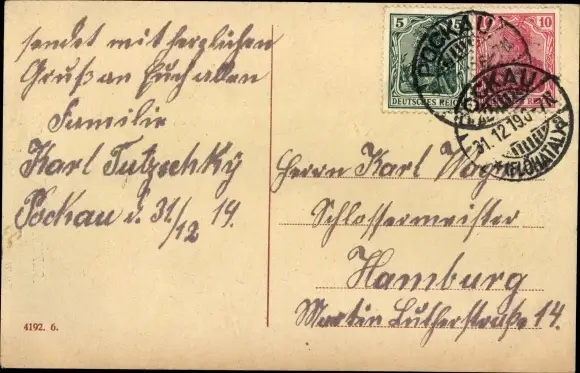 sendet mit herzlichen
Gruß an Euch allen
Familie
Karl Tutzschky
Pockau d. 31/12 19.
4192. 6.
5
10
DEUTSCHES REICH
POCKAU
POCKAU
31.12.19
(FLÖHATAL)
Herrn Karl
Schlossermeister
Hamburg
Martin Lutherstraße 14.